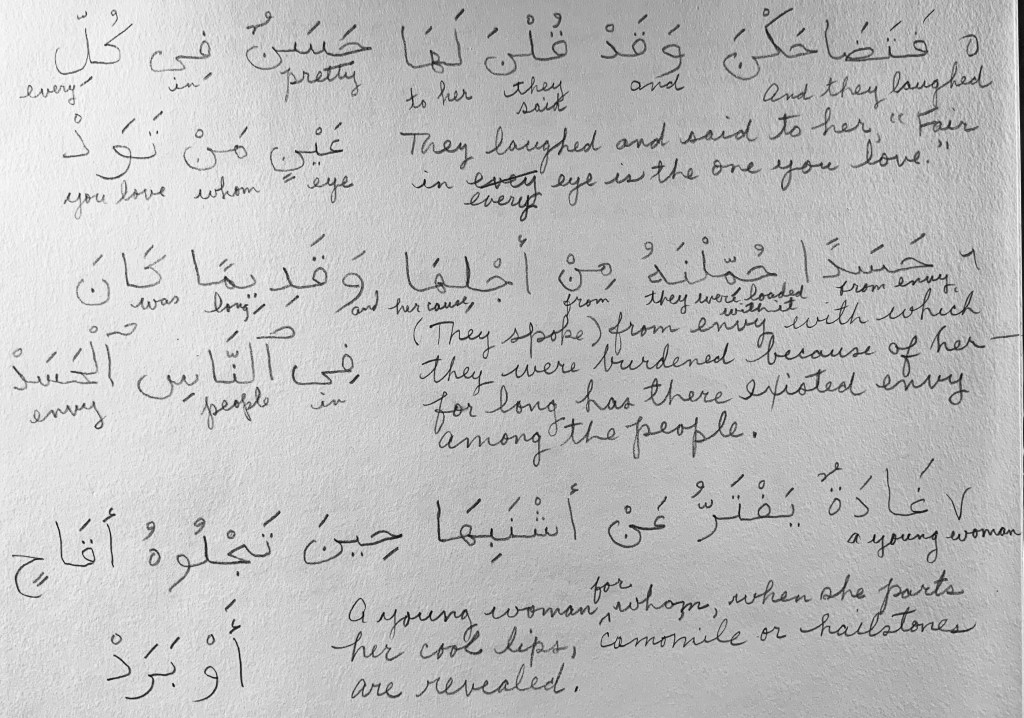 ٥ فَتَضَاحَكْنَ وَقَدْ قُلْنَ لَهَا حَسَنٌ فِي كُلِّ
and they laughed and they said to her pretty in every
عَيْنٍ مَنْ تَوَدْ They laughed and said to her, "Fair
eye whom you love in every eye is the one you love."
every
٦ حَسَدًا حُمِّلْنَهُ مِنْ أَجْلِهَا وَقَدِيمًا كَانَ
from envy they were loaded with it from her cause, and long, was
(They spoke) from envy with which
فِي ٱلنَّاسِ ٱلْحَسَدْ they were burdened because of her—
in people envy for long has there existed envy
among the people.
٧ غَادَةٌ يَفْتَرُّ عَنْ أَشْنَبِهَا حِينَ تَجْلُوهُ أَقَاحٍ
a young woman
A young woman for whom, when she parts
أَوْ بَرَدْ her cool lips, camomile or hailstones
are revealed.